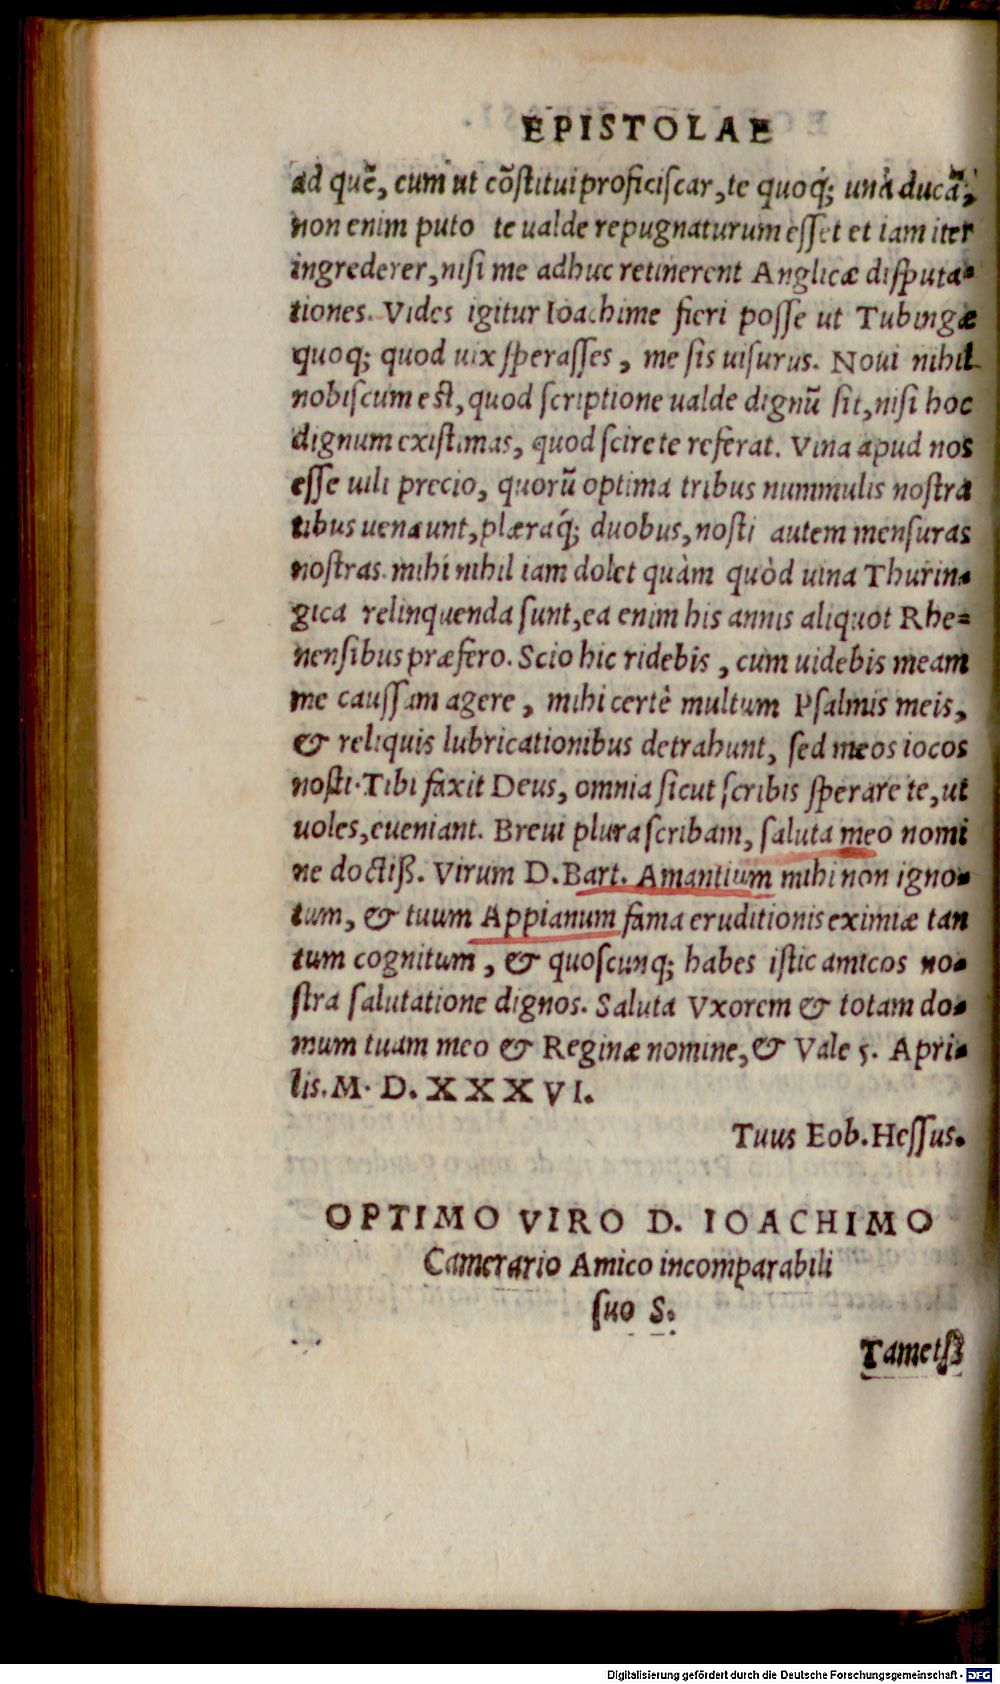 EPISTOLAE
ad quẽ, cum ut cõstitui proficiscar, te quoq́; unà ducã,
non enim puto te ualde repugnaturum esset et iam iter
ingrederer, nisi me adhuc retinerent Anglicæ disputa-
tiones. Vides igitur Ioachime fieri posse ut Tubingæ
quoq; quod uix sperasses, me sis uisurus. Noui nihil
nobiscum est, quod scriptione ualde dignũ sit, nisi hoc
dignum existimas, quod scire te referat. Vina apud nos
esse uili precio, quorũ optima tribus nummulis nostra
tibus ueneunt, plæraq́; duobus, nosti autem mensuras
nostras. mihi nihil iam dolet quàm quòd uina Thurin-
gica relinquenda sunt, ea enim his annis aliquot Rhe=
nensibus præfero. Scio hic ridebis, cum uidebis meam
me caussam agere, mihi certè multum Psalmis meis,
& reliquis lubricationibus detrahunt, sed meos iocos
nosti. Tibi faxit Deus, omnia sicut scribis sperare te, ut
uoles, eueniant. Breui plura scribam, saluta meo nomi
ne doctiß. Virum D. Bart. Amantium mihi non igno-
tum, & tuum Appianum fama eruditionis eximiæ tan
tum cognitum, & quoscunq; habes istic amicos no-
stra salutatione dignos. Saluta Vxorem & totam do-
mum tuam meo & Reginæ nomine, & Vale 5. Apri-
lis. M. D. XXXVI.
Tuus Eob. Hessus.
OPTIMO VIRO D. IOACHIMO
Camerario Amico incomparabili
suo S.
Tametsi
Digitalisierung gefördert durch die Deutsche Forschungsgemeinschaft - DFG